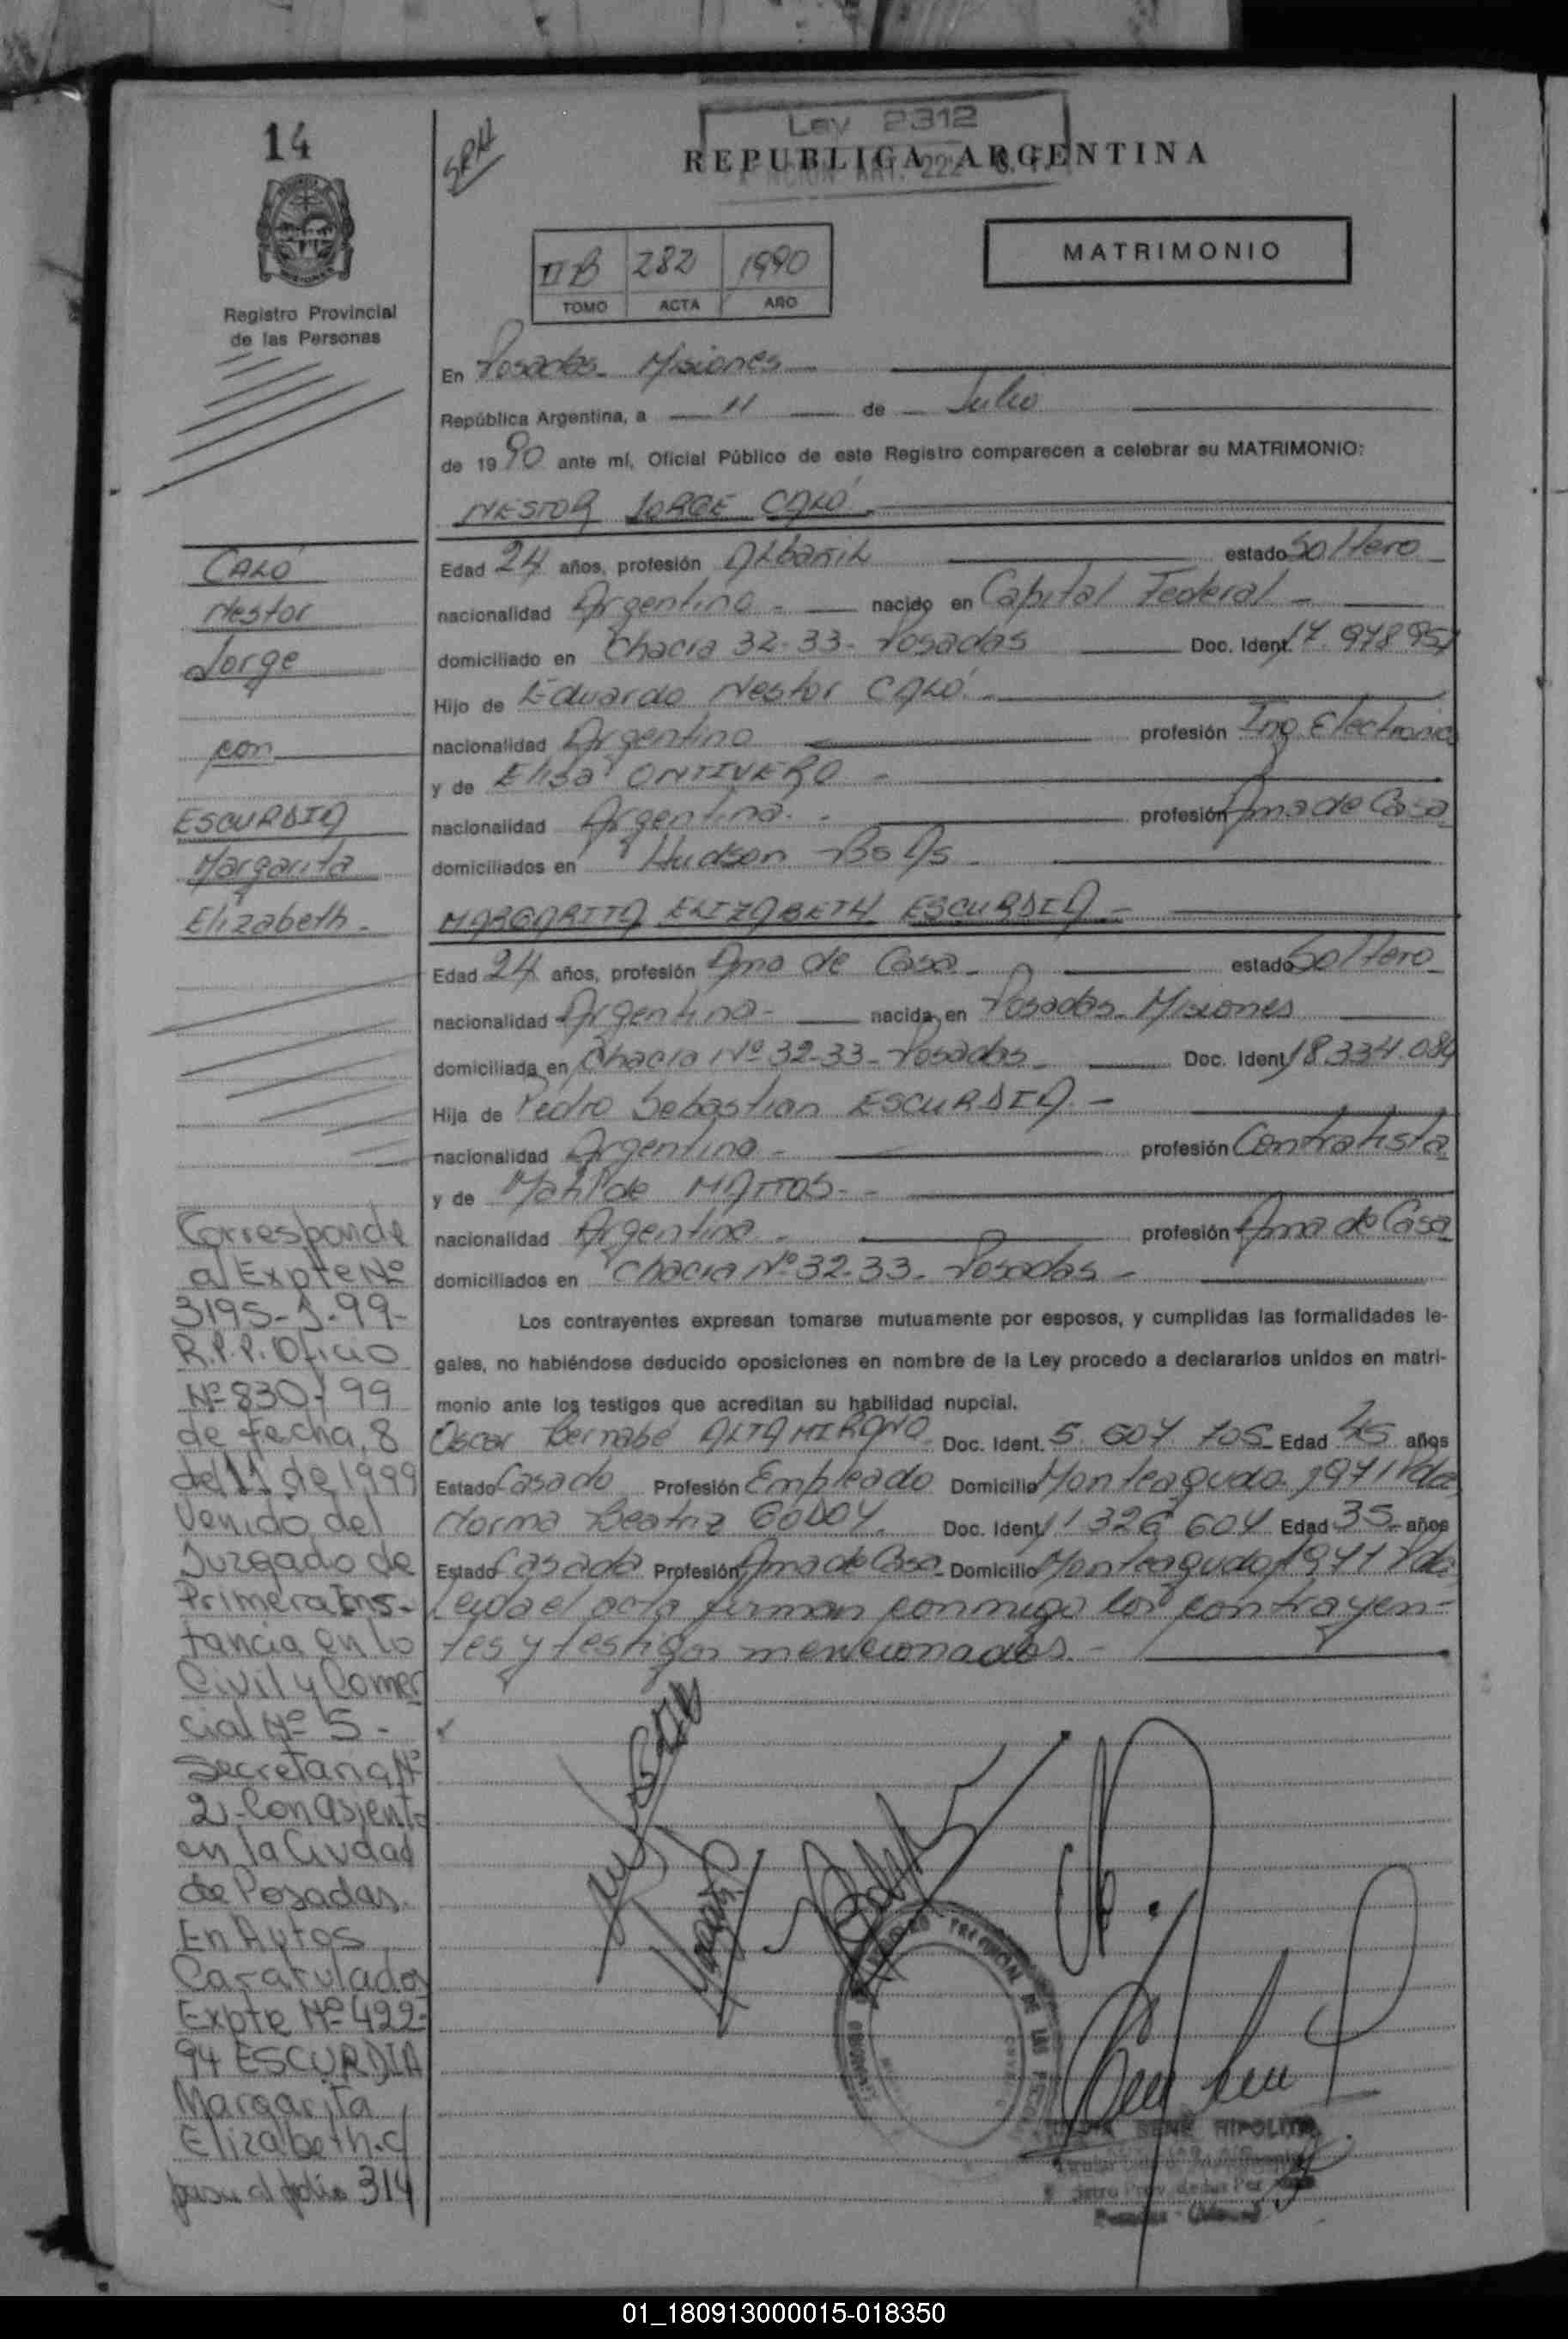 14
SRH
Ley 2312
REPUBLICA ARGENTINA
ART. 222
II B 282 1990
TOMO ACTA AÑO
MATRIMONIO
Registro Provincial
de las Personas
En Posadas - Misiones
República Argentina, a 11 de Julio
de 1990 ante mí, Oficial Público de este Registro comparecen a celebrar su MATRIMONIO:
NESTOR JORGE CALÓ
Edad 24 años, profesión Albañil estado Soltero
nacionalidad Argentina - nacido en Capital Federal -
domiciliado en Chacra 32-33- Posadas Doc. Ident. 17.978.951
Hijo de Eduardo Nestor CALÓ.
nacionalidad Argentina profesión Ing. Electronico
y de Elisa ONTIVERO -
nacionalidad Argentina. profesión Ama de Casa
domiciliados en Hudson Bs As
MARGARITA ELIZABETH ESCURDIA -
Edad 24 años, profesión Ama de Casa - estado Soltera
nacionalidad Argentina - nacida en Posadas - Misiones
domiciliada en Chacra Nº 32-33- Posadas Doc. Ident. 18.334.084
Hija de Pedro Sebastian ESCURDIA -
nacionalidad Argentina - profesión Contratista
y de Matilde MATTOS -
nacionalidad Argentina - profesión Ama de Casa
domiciliados en Chacra Nº 32-33- Posadas -
Los contrayentes expresan tomarse mutuamente por esposos, y cumplidas las formalidades le-
gales, no habiéndose deducido oposiciones en nombre de la Ley procedo a declararlos unidos en matri-
monio ante los testigos que acreditan su habilidad nupcial.
Oscar Bernabé ALTAMIRANO Doc. Ident. 5.607.705 Edad 45 años
Estado Casado Profesión Empleado Domicilio Monteagudo 1971 Pdas
Norma Beatriz GODOY. Doc. Ident. 11 326 604 Edad 35 años
Estado Casada Profesión Ama de Casa - Domicilio Monteagudo 1971 Pdas
Leida el acta firman conmigo los contrayen-
tes y testigos mencionados -
CALÓ
Nestor
Jorge
con
ESCURDIA
Margarita
Elizabeth -
Corresponde
al Expte Nº
3195-J-99-
R.P.P. Oficio
Nº 830/99
de fecha 8
del 11 de 1999
Venido del
Juzgado de
Primera Ins-
tancia en lo
Civil y Comer
cial Nº 5 -
Secretaria Nº
2 - Con asiento
en la Ciudad
de Posadas.
En Autos
Caratulados
Expte Nº 422-
94 ESCURDIA
Margarita
Elizabeth. c/
pasa al folio 314
RENE HIPOLITO
01_180913000015-018350